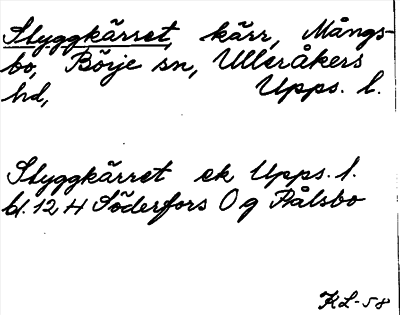 Styggkärret, kärr, Mångs-
bo, Börje sn, Ulleråkers
hd, Upps. l.
Styggkärret ek Upps. l.
bl. 12 H Söderfors O g Pålsbo
KL-58